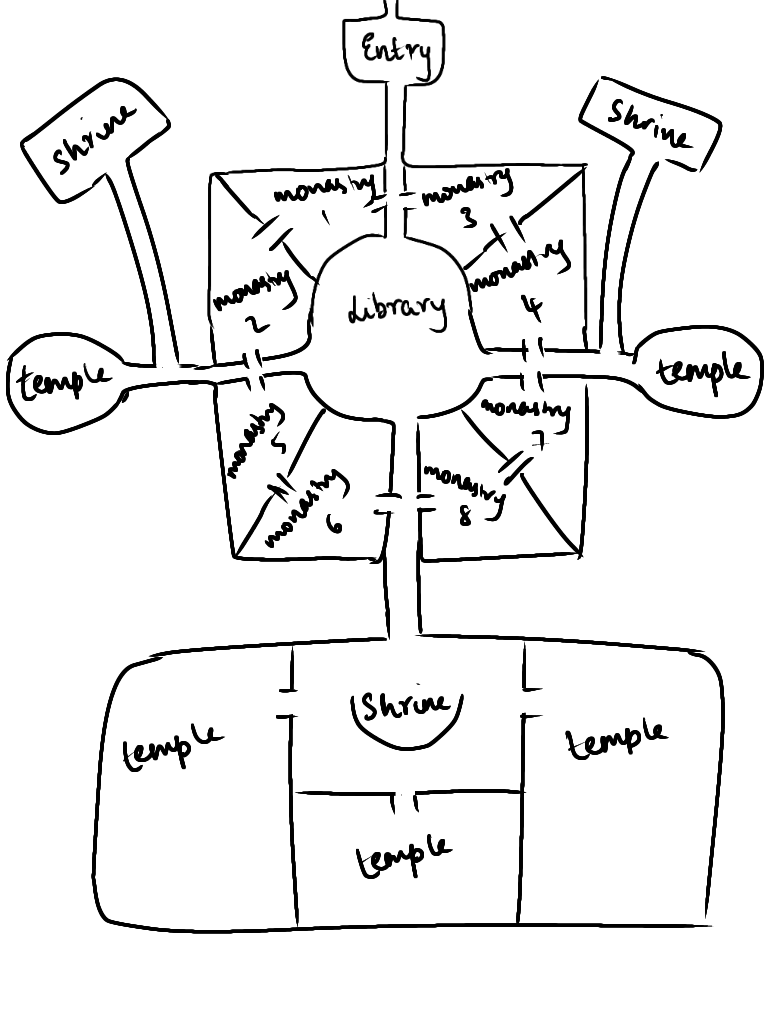 Entry
Shrine
Shrine
monastry
1
monastry
3
monastry
2
Library
monastry
4
temple
temple
monastry
5
monastry
7
monastry
6
monastry
8
Shrine
temple
temple
temple